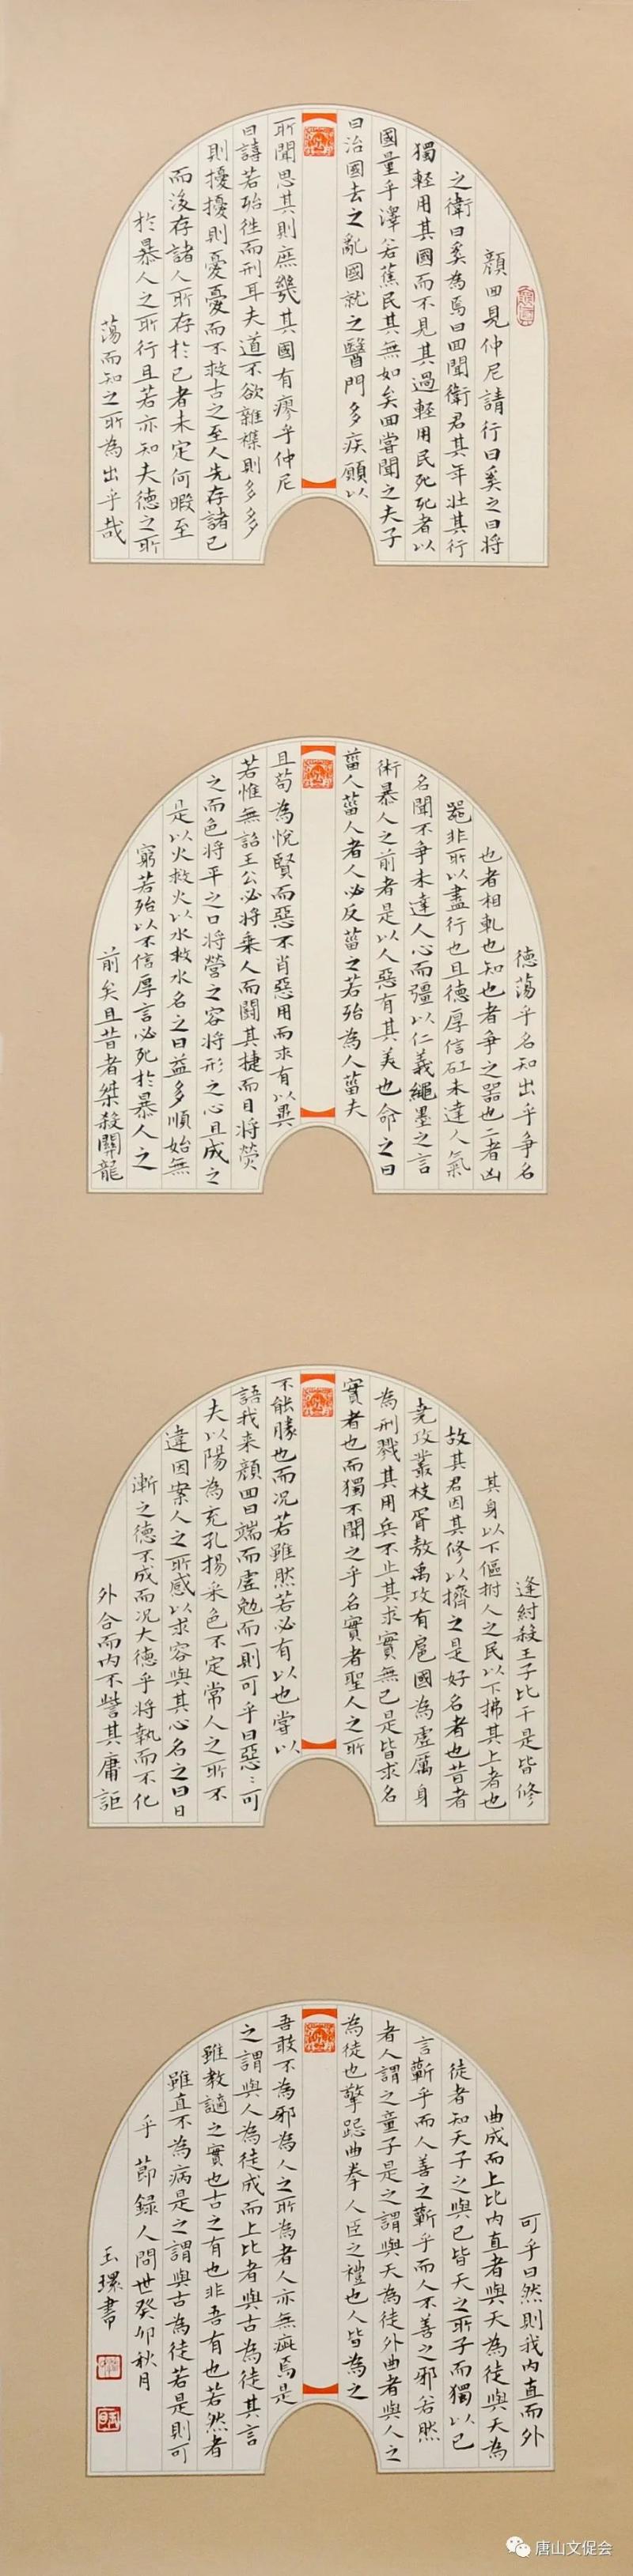 顏回見仲尼請行曰奚之曰將
之衛曰奚為焉曰回聞衛君其年壯其行
獨輕用其國而不見其過輕用民死死者以
國量乎澤若蕉民其無如矣回嘗聞之夫子
曰治國去之亂國就之醫門多疾願以
所聞思其則庶幾其國有瘳乎仲尼
曰譆若殆往而刑耳夫道不欲雜雜則多多
則擾擾則憂憂而不救古之至人先存諸己
而後存諸人所存於己者未定何暇至
於暴人之所行且若亦知夫德之所
蕩而知之所為出乎哉
德蕩乎名知出乎爭名
也者相軋也知也者爭之器也二者凶
器非所以盡行也且德厚信矼未達人氣
名聞不爭未達人心而彊以仁義繩墨之言
術暴人之前者是以人惡有其美也命之曰
菑人菑人者人必反菑之若殆為人菑夫
且苟為悅賢而惡不肖惡用而求有以異
若惟無詔王公必將乘人而鬭其捷而目將熒
之而色將平之口將營之容將形之心且成之
是以火救火以水救水名之曰益多順始無
窮若殆以不信厚言必死於暴人之
前矣且昔者桀殺關龍
逢紂殺王子比干是皆修
其身以下傴拊人之民以下拂其上者也
故其君因其修以擠之是好名者也昔者
堯攻叢枝胥敖禹攻有扈國為虛厲身
為刑戮其用兵不止其求實無已是皆求名
實者也而獨不聞之乎名實者聖人之所
不能勝也而況若雖然若必有以也嘗以
語我来顏回曰端而虛勉而一則可乎曰惡:可
夫以陽為充孔揚采色不定常人之所不
違因案人之所感以求容與其心名之曰日
漸之德不成而況大德乎將執而不化
外合而內不訾其庸詎
可乎曰然則我內直而外
曲成而上比內直者與天為徒與天為
徒者知天子之與己皆天之所子而獨以己
言蘄乎而人善之蘄乎而人不善之邪若然
者人謂之童子是之謂與天為徒外曲者與人之
為徒也擎跽曲拳人臣之禮也人皆為之
吾敢不為邪為人之所為者人亦無疵焉是
之謂與人為徒成而上比者與古為徒其言
雖教讁之實也古之有也非吾有也若然者
雖直不為病是之謂與古為徒若是則可
乎 節録人間世癸卯秋月
玉環書
唐山文促会